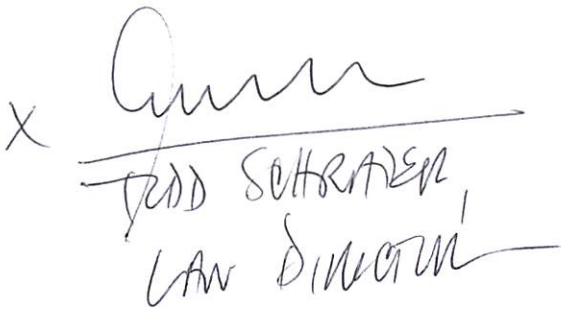 X
TODD SCHRADER,
LAW DIRECTOR